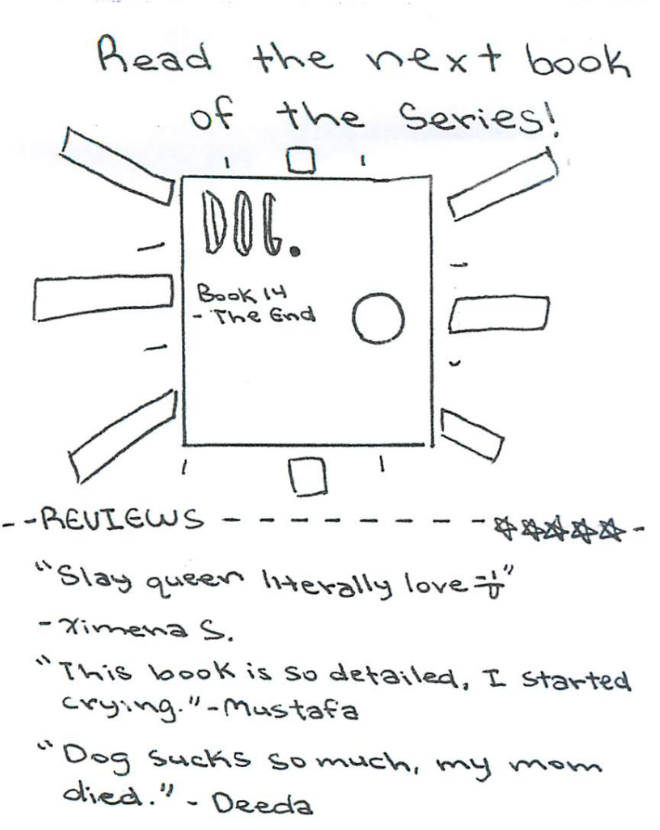 Read the next book
of the Series!
DOG.
Book 14
- The End
--REVIEWS - - - - - - - ☆☆☆☆☆-
"Slay queen literally love "
-Ximena S.
"This book is so detailed, I started
crying." -Mustafa
"Dog sucks so much, my mom
died." - Deeda